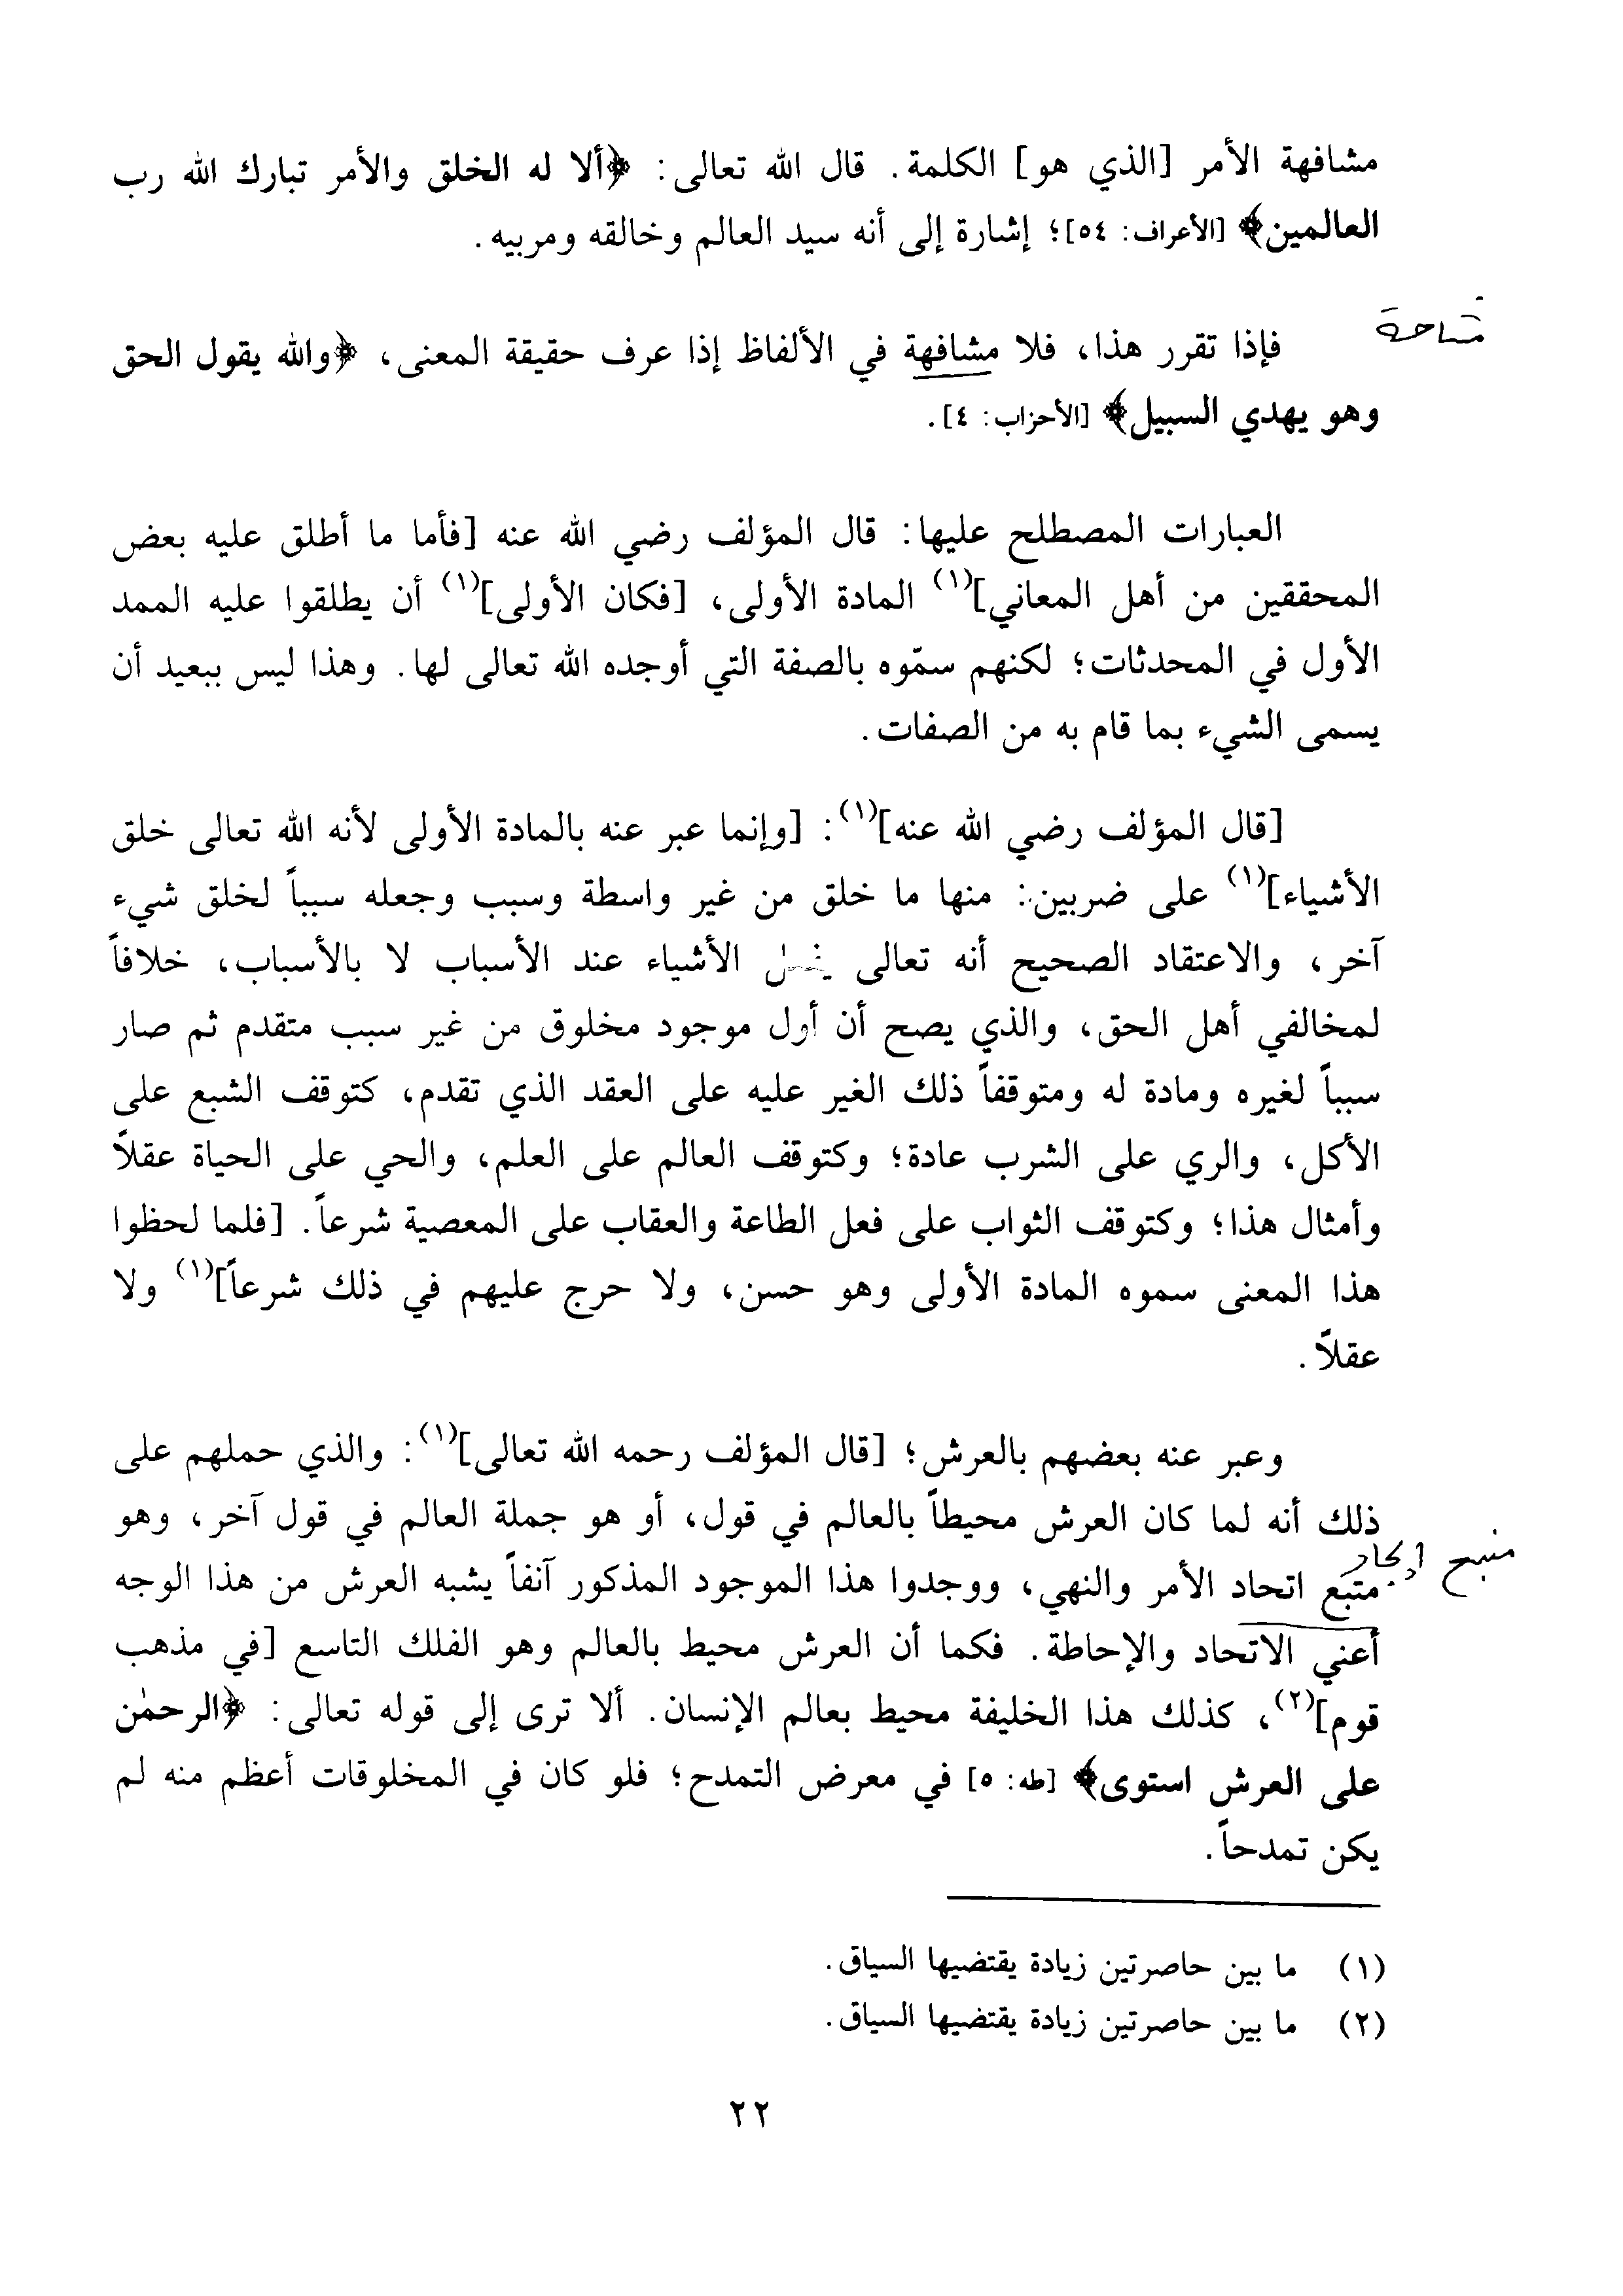 مشافهة الأمر [الذي هو] الكلمة. قال الله تعالى: ﴿ألا له الخلق والأمر تبارك الله رب
العالمين﴾ [الأعراف: ٥٤]؛ إشارة إلى أنه سيد العالم وخالقه ومربيه.
فإذا تقرر هذا، فلا مشافهة في الألفاظ إذا عرف حقيقة المعنى، ﴿والله يقول الحق
وهو يهدي السبيل﴾ [الأحزاب: ٤].
العبارات المصطلح عليها: قال المؤلف رضي الله عنه [فأما ما أطلق عليه بعض
المحققين من أهل المعاني](١) المادة الأولى، [فكان الأولى](١) أن يطلقوا عليه الممد
الأول في المحدثات؛ لكنهم سمّوه بالصفة التي أوجده الله تعالى لها. وهذا ليس ببعيد أن
يسمى الشيء بما قام به من الصفات.
[قال المؤلف رضي الله عنه](١): [وإنما عبر عنه بالمادة الأولى لأنه الله تعالى خلق
الأشياء](١) على ضربين: منها ما خلق من غير واسطة وسبب وجعله سبباً لخلق شيء
آخر، والاعتقاد الصحيح أنه تعالى الأشياء عند الأسباب لا بالأسباب، خلافاً
لمخالفي أهل الحق، والذي يصح أن أول موجود مخلوق من غير سبب متقدم ثم صار
سبباً لغيره ومادة له ومتوقفاً ذلك الغير عليه على العقد الذي تقدم، كتوقف الشبع على
الأكل، والري على الشرب عادة؛ وكتوقف العالم على العلم، والحي على الحياة عقلاً
وأمثال هذا؛ وكتوقف الثواب على فعل الطاعة والعقاب على المعصية شرعاً. [فلما لحظوا
هذا المعنى سموه المادة الأولى وهو حسن، ولا حرج عليهم في ذلك شرعاً](١) ولا
عقلاً.
وعبر عنه بعضهم بالعرش؛ [قال المؤلف رحمه الله تعالى](١): والذي حملهم على
ذلك أنه لما كان العرش محيطاً بالعالم في قول، أو هو جملة العالم في قول آخر، وهو
متبع اتحاد الأمر والنهي، ووجدوا هذا الموجود المذكور آنفاً يشبه العرش من هذا الوجه
أعني الاتحاد والإحاطة. فكما أن العرش محيط بالعالم وهو الفلك التاسع [في مذهب
قوم](٢)، كذلك هذا الخليفة محيط بعالم الإنسان. ألا ترى إلى قوله تعالى: ﴿الرحمٰن
على العرش استوى﴾ [طه: ٥] في معرض التمدح؛ فلو كان في المخلوقات أعظم منه لم
يكن تمدحاً.
(١) ما بين حاصرتين زيادة يقتضيها السياق.
(٢) ما بين حاصرتين زيادة يقتضيها السياق.
٢٢